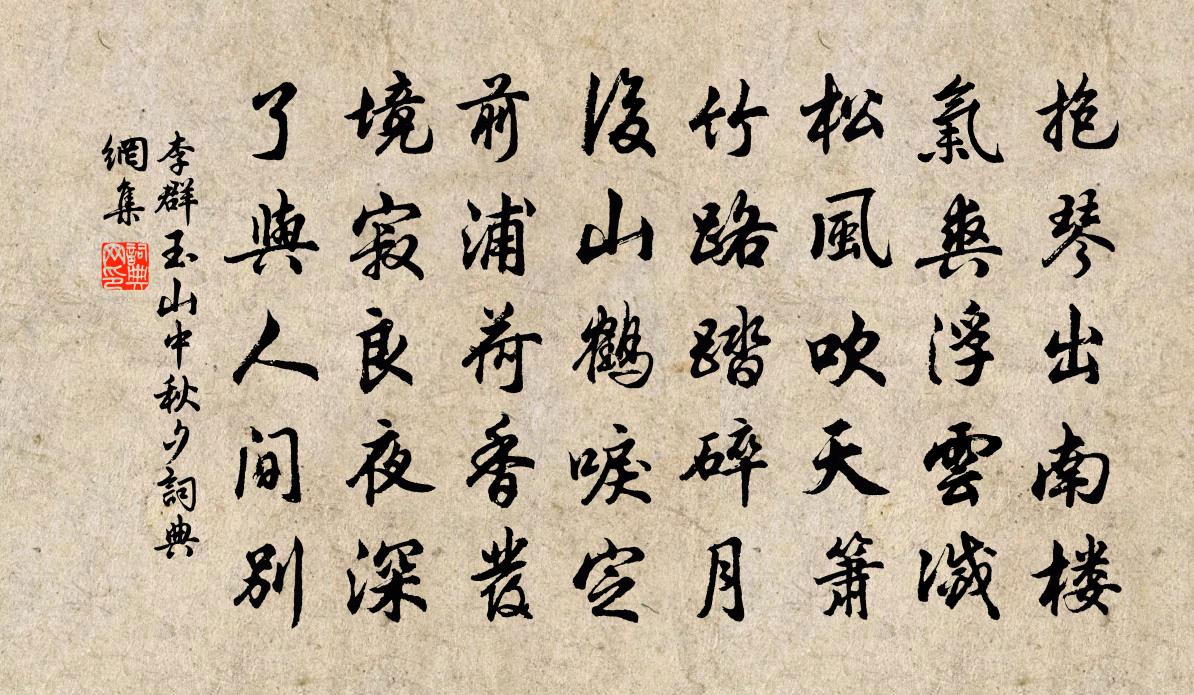 抱琴出南楼
氣爽浮雲滅
松風吹天簫
竹路踏碎月
後山鶴唳定
前浦荷香發
境寂良夜深
了與人間別
李群玉山中秋夕詞典
網集
詞典
网印